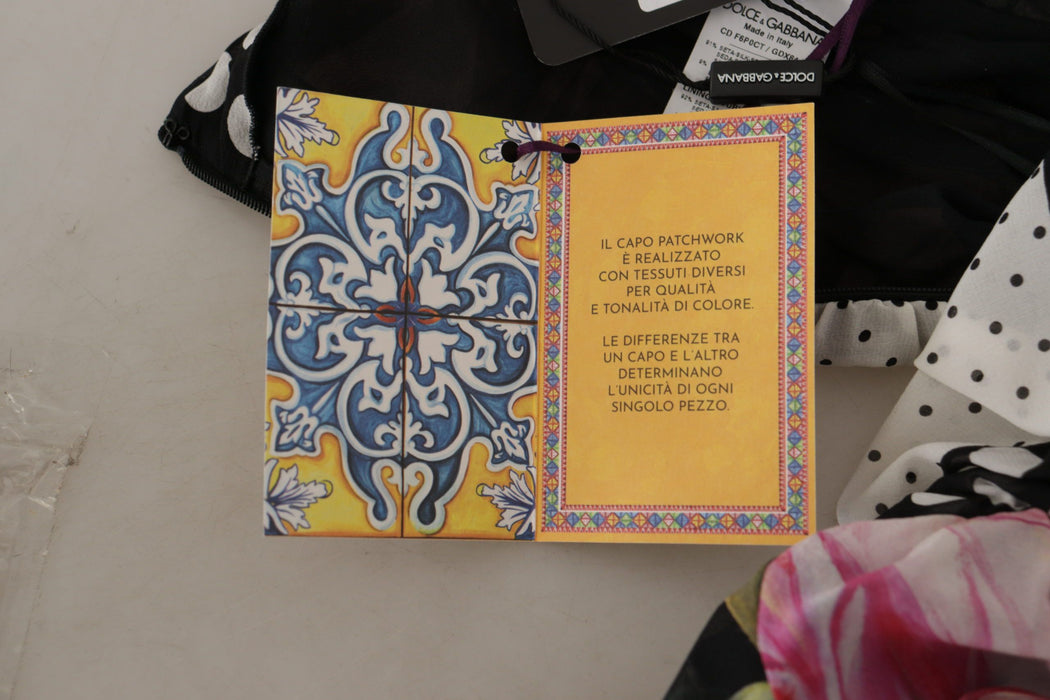 DOLCE & GABBANA
Made in Italy
CD F6P0CT / GDX
DOLCE & GABBANA
LINING
IL CAPO PATCHWORK
È REALIZZATO
CON TESSUTI DIVERSI
PER QUALITÀ
E TONALITÀ DI COLORE.
LE DIFFERENZE TRA
UN CAPO E L'ALTRO
DETERMINANO
L'UNICITÀ DI OGNI
SINGOLO PEZZO.